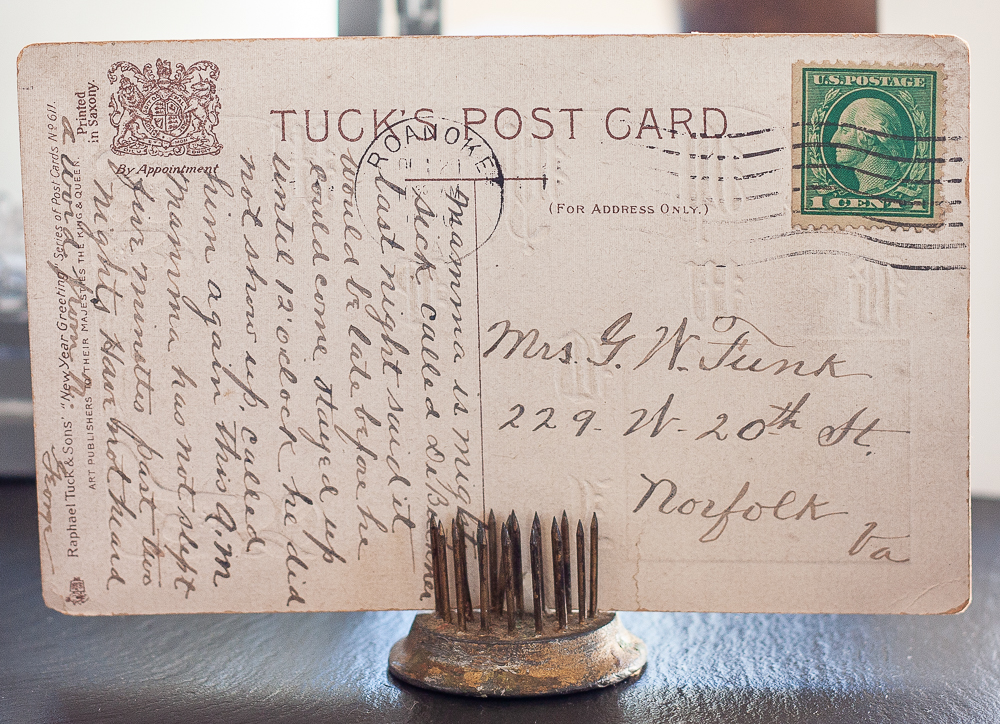 TUCK'S POST CARD
(FOR ADDRESS ONLY.)
By Appointment
Printed
in Saxony.
Raphael Tuck & Sons' "New Year Greeting" Series of Post Cards No 611.
ART PUBLISHERS TO THEIR MAJESTIES THE KING & QUEEN.
ROANOKE
U.S. POSTAGE
1 CENT 1
Mrs. G. W. Funk
229. W- 20th St.
Norfolk
Va
Mamma is might
sick called Dr
last night said it
would be late before he
could come stayed up
until 12 oclock he did
not show up. called
him again this A.m
Mamma has not slept
five minutes past two
nights Have not heard
a word from